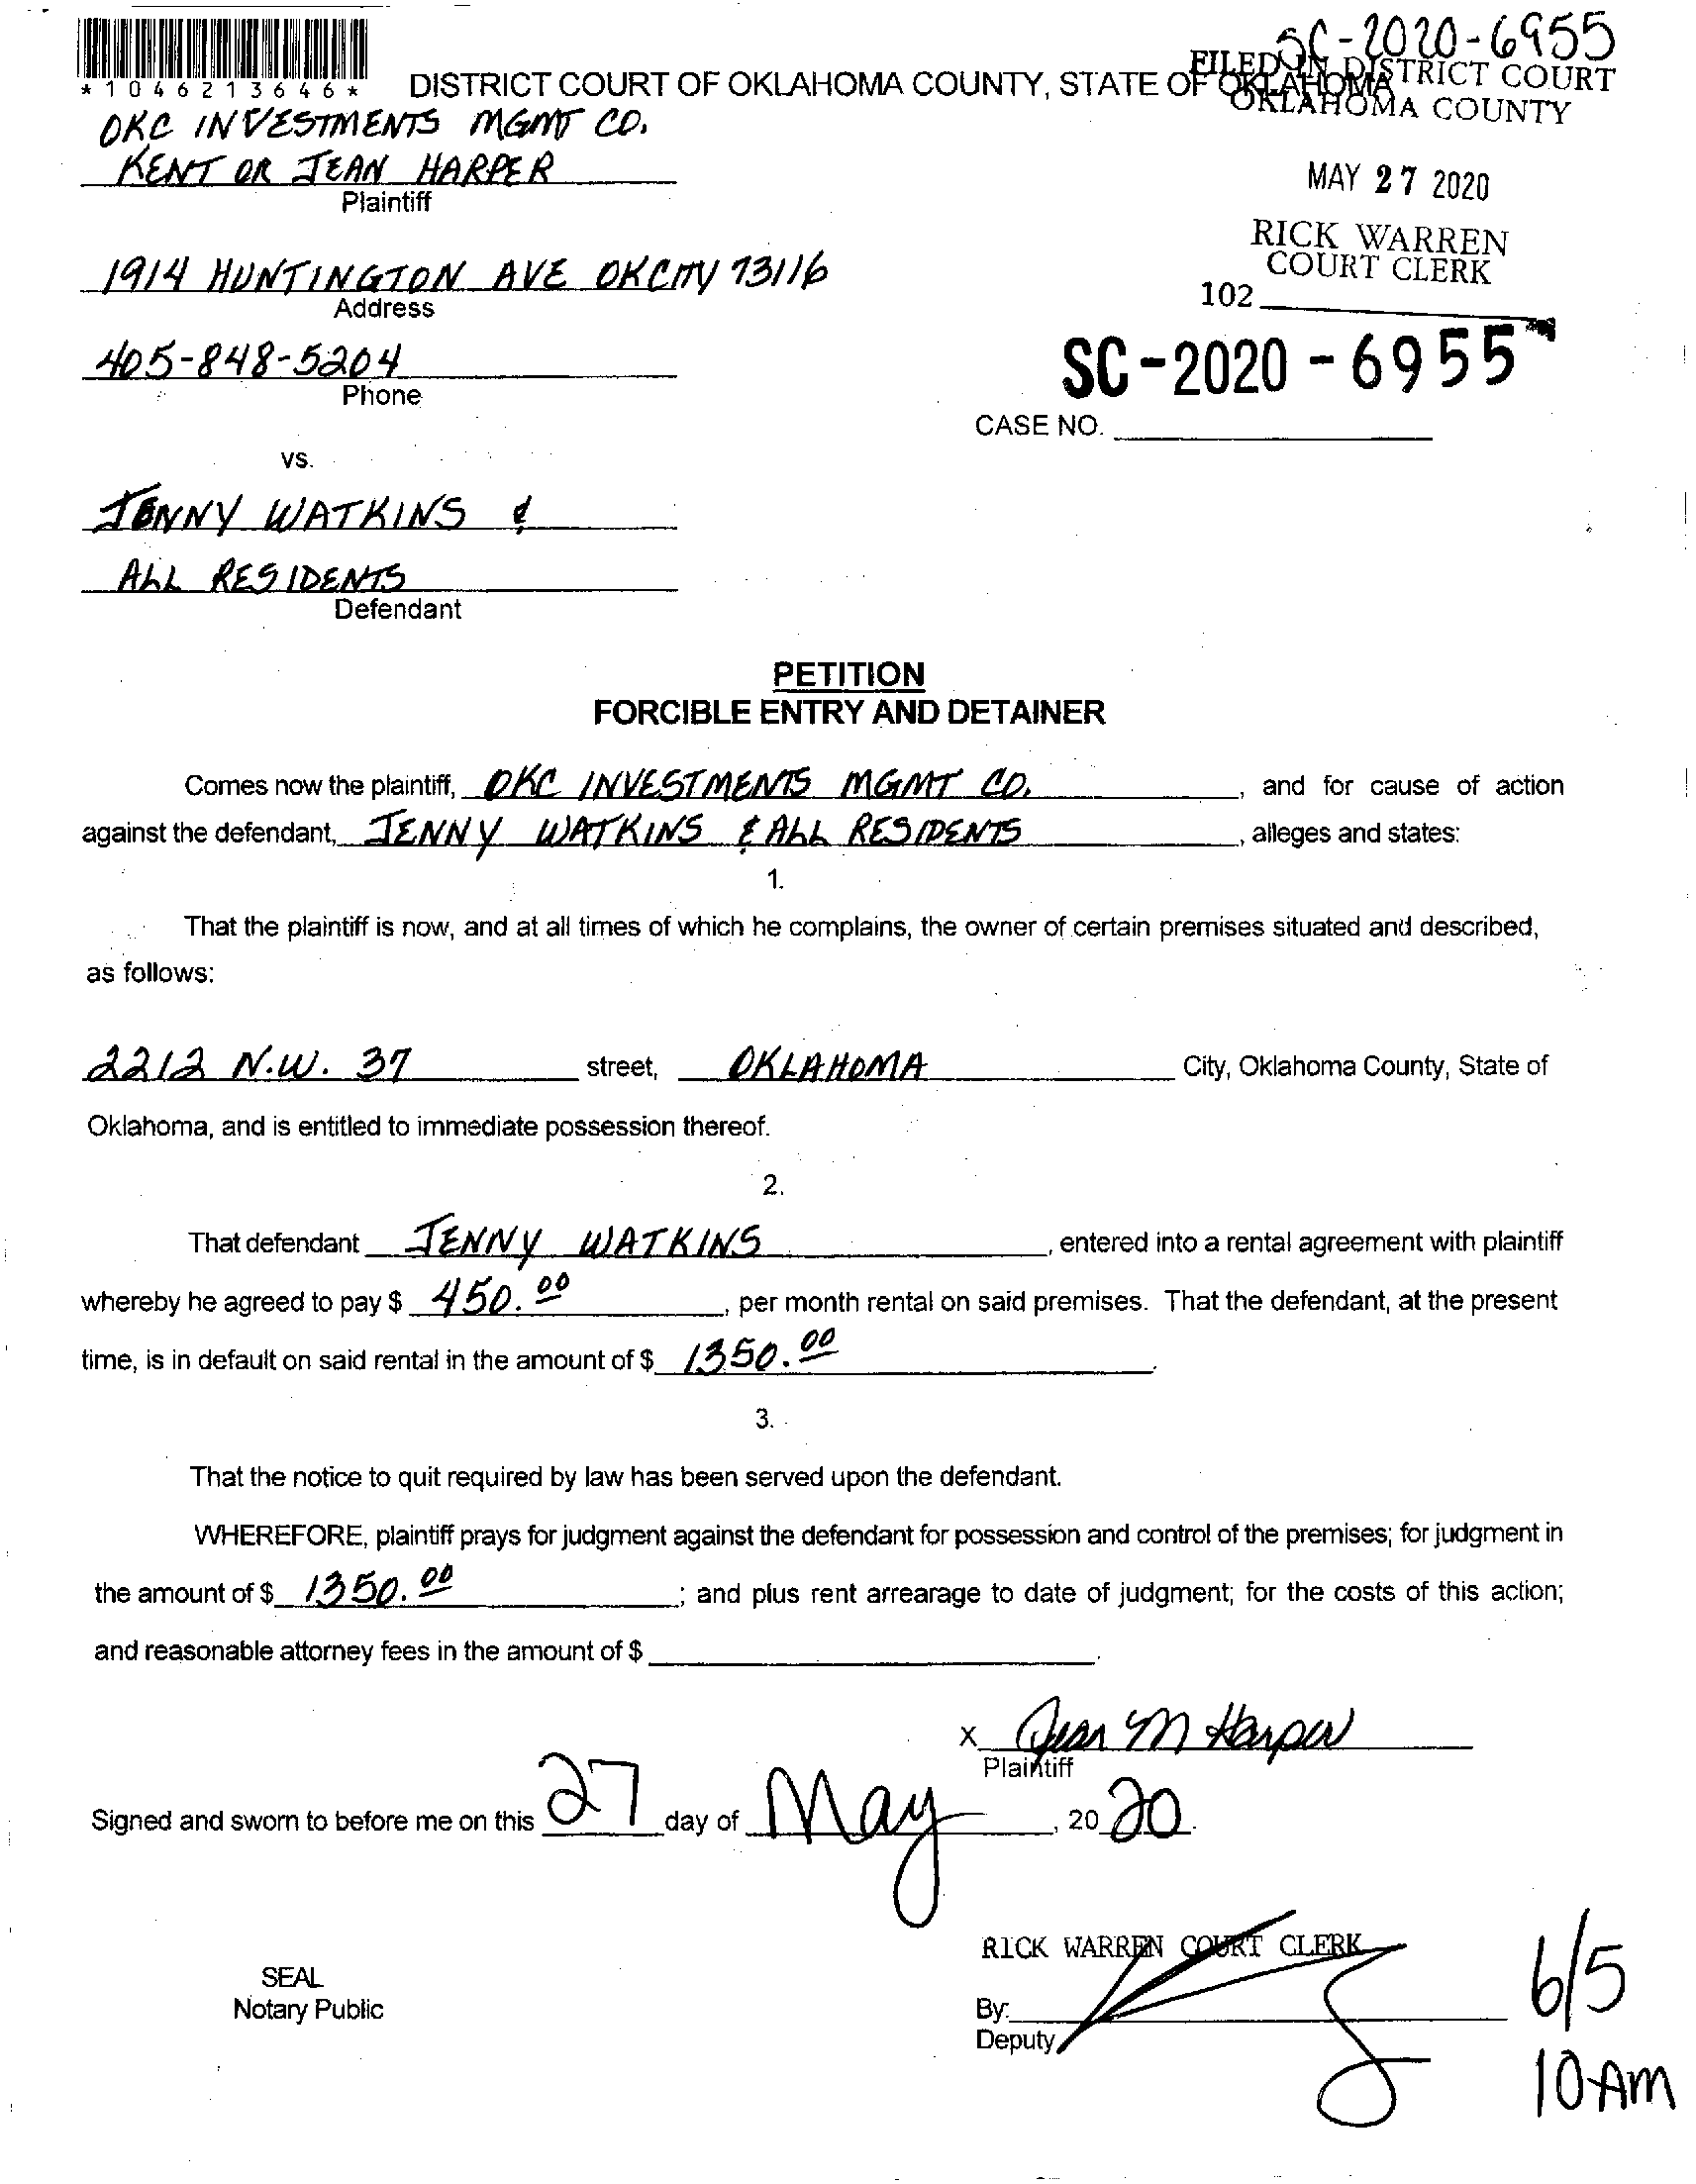 SC-2020-6955
FILED IN DISTRICT COURT
OKLAHOMA COUNTY
*1046213646*
DISTRICT COURT OF OKLAHOMA COUNTY, STATE OF OKLAHOMA
OKC INVESTMENTS MGMT CO.
KENT OR JEAN HARPER
Plaintiff
MAY 27 2020
RICK WARREN
COURT CLERK
102
1914 HUNTINGTON AVE OKCITY 73116
Address
405-848-5204
Phone
SC-2020-6955
CASE NO.
vs.
JENNY WATKINS &
ALL RESIDENTS
Defendant
PETITION
FORCIBLE ENTRY AND DETAINER
Comes now the plaintiff, OKC INVESTMENTS MGMT CO., and for cause of action
against the defendant, JENNY WATKINS & ALL RESIDENTS, alleges and states:
1.
That the plaintiff is now, and at all times of which he complains, the owner of certain premises situated and described,
as follows:
2212 N.W. 37 street, OKLAHOMA City, Oklahoma County, State of
Oklahoma, and is entitled to immediate possession thereof.
2.
That defendant JENNY WATKINS, entered into a rental agreement with plaintiff
whereby he agreed to pay $ 450.00, per month rental on said premises. That the defendant, at the present
time, is in default on said rental in the amount of $ 1350.00.
3.
That the notice to quit required by law has been served upon the defendant.
WHEREFORE, plaintiff prays for judgment against the defendant for possession and control of the premises; for judgment in
the amount of $ 1350.00; and plus rent arrearage to date of judgment; for the costs of this action;
and reasonable attorney fees in the amount of $ .
x Jean M Harper
Plaintiff
Signed and sworn to before me on this 27 day of May, 2020.
RICK WARREN COURT CLERK
SEAL
Notary Public
By:
Deputy
6/5
10 AM